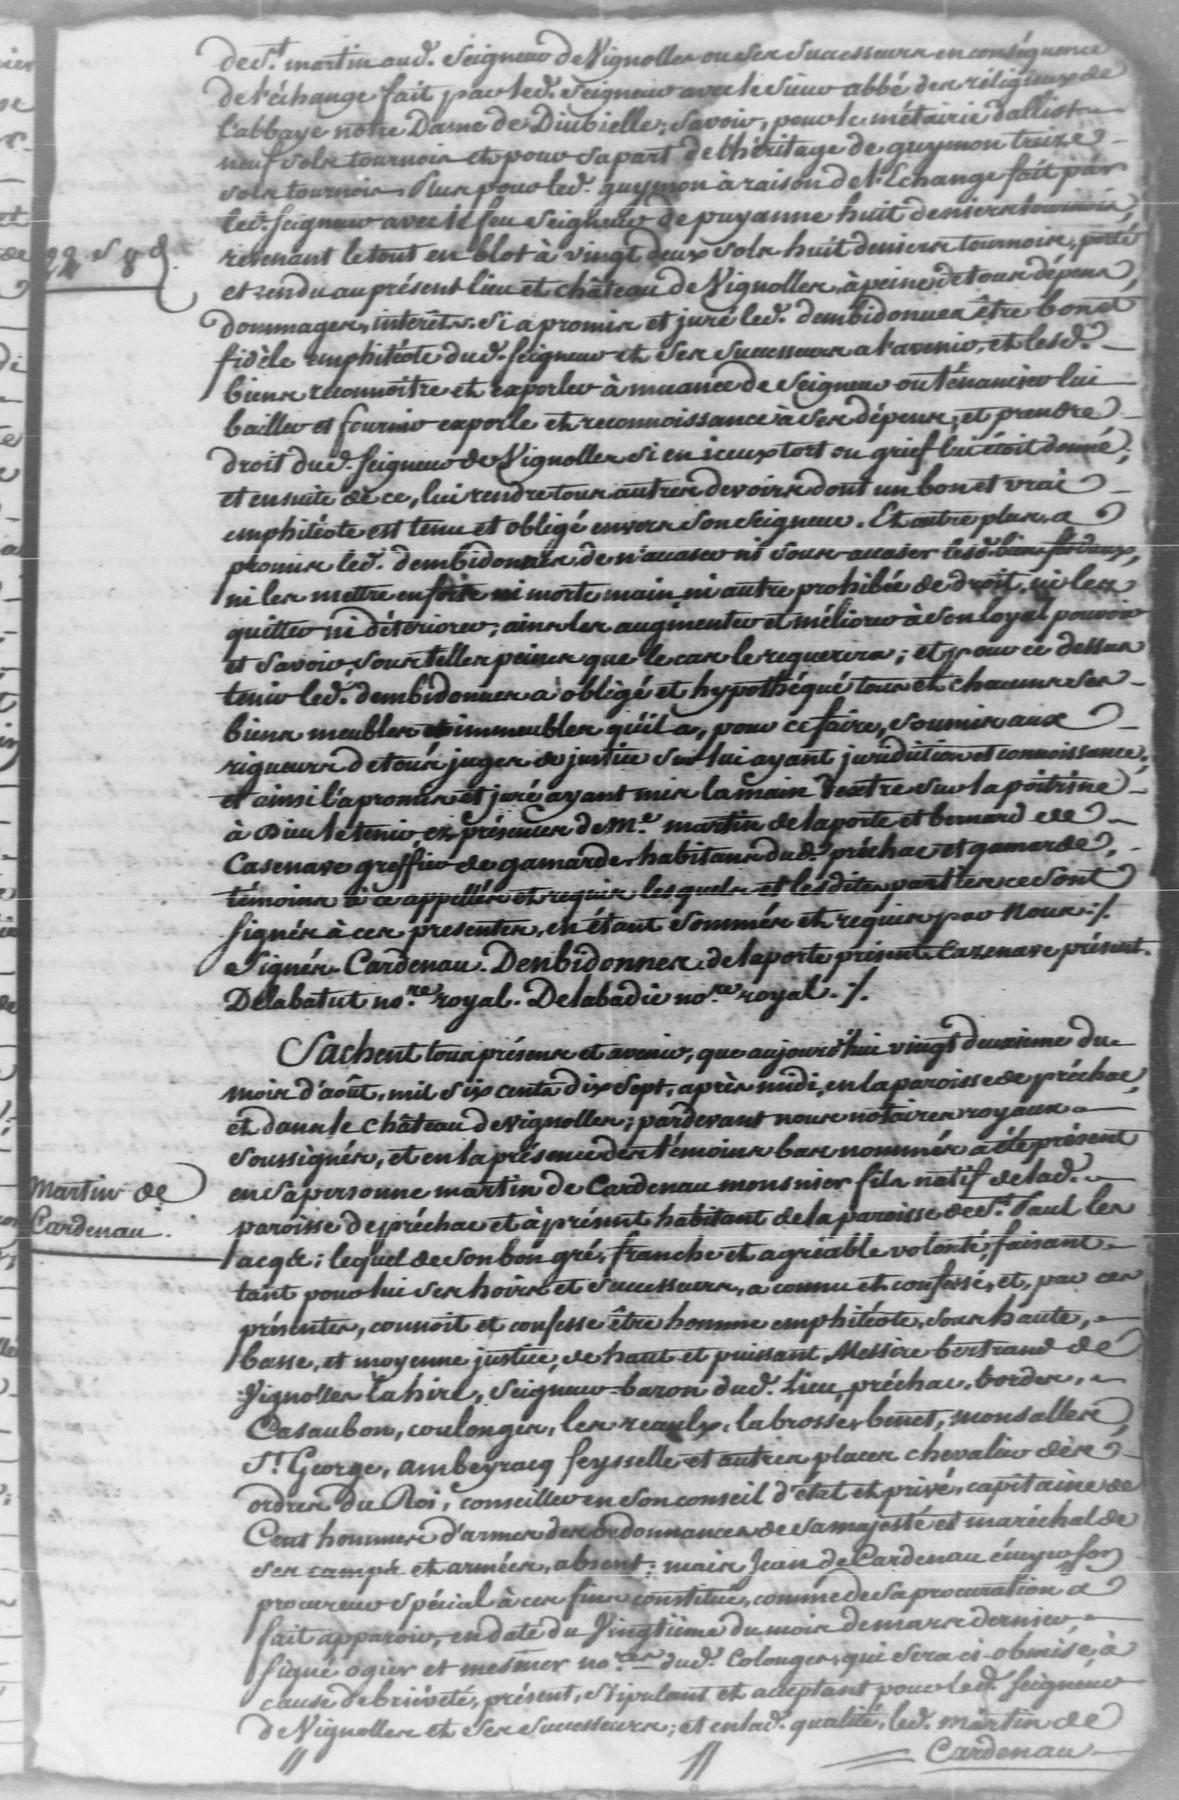 de St. martin aud. Seigneur de Vignolles ou ses successeurs en conséquence
de l'échange fait par led. Seigneur avec le sieur abbé des réligieux de
l'abbaye notre Dame de Diübielle; Savoir, pour la métairie d'alliot
neuf sols tournois et pour sa part de l'héritage de guymon treize
sols tournois. Plus pour led. guymon à raison de l'Echange fait par
led. Seigneur avec le feu Seigneur de puyanne huit deniers tournois,
revenant le tout en blot à vingt deux sols huit deniers tournois, porté
22 s 8 d.
et rendu au présent lieu et château de Vignolles, à peine de tous dépens,
dommages, intérêts. Si a promis et juré led. dembidonnes être bon et
fidèle emphitéote dud. Seigneur et ses successeurs a l'avenir, et lesd.
biens reconnoitre et exporler à muance de Seigneur ou ténancier lui
bailler et fournir exporle et reconnoissance à ses dépens, et prendre
droit dud. Seigneur de Vignolles si en iceux tort ou grief lui étoit donné;
et ensuite de ce, lui rendre tous autres devoirs dont un bon et vrai
emphitéote est tenu et obligé envers son Seigneur. Et outre plus, a
promis led. dembidonnes de n'acaser ni sous acaser lesd. biens féodaux,
ni les mettre en forte ni morte main, ni autre prohibée de droit, ni les
quitter ni détériorer; ains les augmenter et méliorer à son loyal pouvoir
et savoir, sous telles peines que le cas le requerera; et pour ce dessus
tenir led. dembidonnes a obligé et hypothéqué tous et chacuns ses
biens meubles et immeubles qu'il a, pour ce faire, soumis aux
rigueurs de tous juges de justice sur lui ayant juridiction et connoissance;
et ainsi l'a promis et juré ayant mis la main dextre sur la poitrine
à Dieu le tenir, ez présences de Me. martin de laporte et bernard de
Casenave greffier de gamarde, habitans dud. préchac et gamarde,
témoins à ce appellés et requis lesquels et lesdites parties se sont
signés à ces presentes, en étant sommés et requis par Nous ./.
Signés. Cardenau. Denbidonnes. de laporte présent. Cazenave présent.
Delabatut no.re royal. Delabadie no.re royal. ./.
Sachent tous présens et avenir, que aujourd'hui vingt deuxieme du
mois d'août, mil six cents dix sept, après midi, en la paroisse de préchac,
et dans le château de vignolles; pardevant nous notaires royaux
soussignés, et en la présence des témoins bas nommés a été présent
Martin de
Cardenau.
en sa personne martin de Cardenau monsnier fils natif de lad.
paroisse de préchac et à présent habitant de la paroisse de St. Paul les
acqs; lequel de son bon gré, franche et agréable volonté, faisant
tant pour lui ses hoirs et successeurs, a connu et confessé, et, par ces
présentes, connoit et confesse être homme emphitéote, sous haute,
basse, et moyenne justice, de haut et puissant, Messire bertrand de
Vignolles Lahire, Seigneur-baron dud. Lieu, préchac, bordes,
Casaubon, coulonges, les reaulx, labrosse, benet, monsalles
St. George, ambeyracq feysselle et autres places chevalier dès
ordres du Roi, conseiller en son conseil d'état et privé, capitaine de
Cent hommes d'armes des ordonnances de sa majesté et maréchal de
ses camps et armées, absent; mais Jean de Cardenau écuyer son
procureur spécial à ces fins constitué, comme de sa procuration a
fait apparoir, en date du Vingtième du mois de mars dernier,
signé ogier et mesmer no.res dud. Colonges, qui sera ci-obmise, à
cause de briéveté, présent, stipulant et acceptant pour led. Seigneur
de Vignolles et ses successeurs; et en lad. qualité, led. martin de
Cardenau